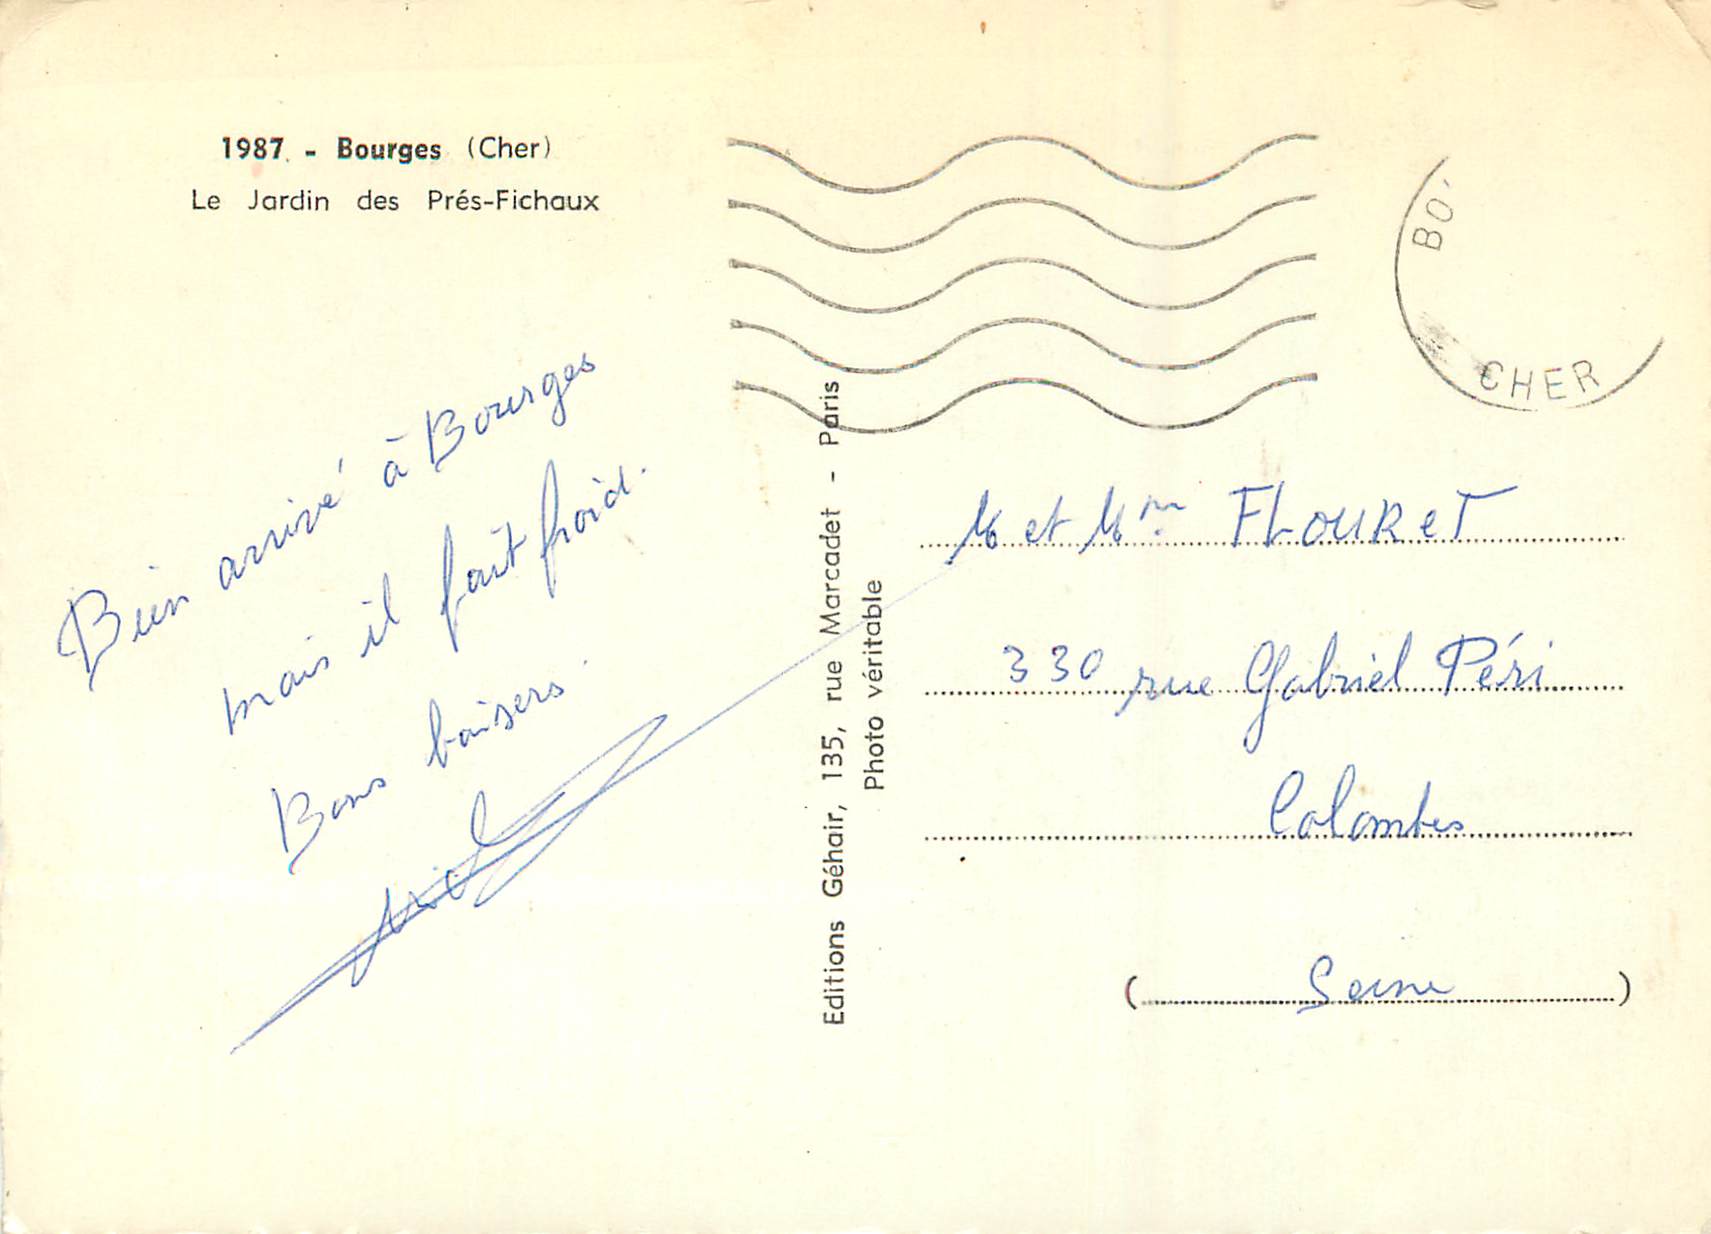 1987. - Bourges (Cher)
Le Jardin des Prés-Fichaux
Bien arrivé à Bourges
mais il fait froid.
Bons baisers
Editions Géhair, 135, rue Marcadet - Paris
Photo véritable
BO
CHER
M et Mme FLOURET
330 rue Gabriel Péri
Colombes
( Seine )